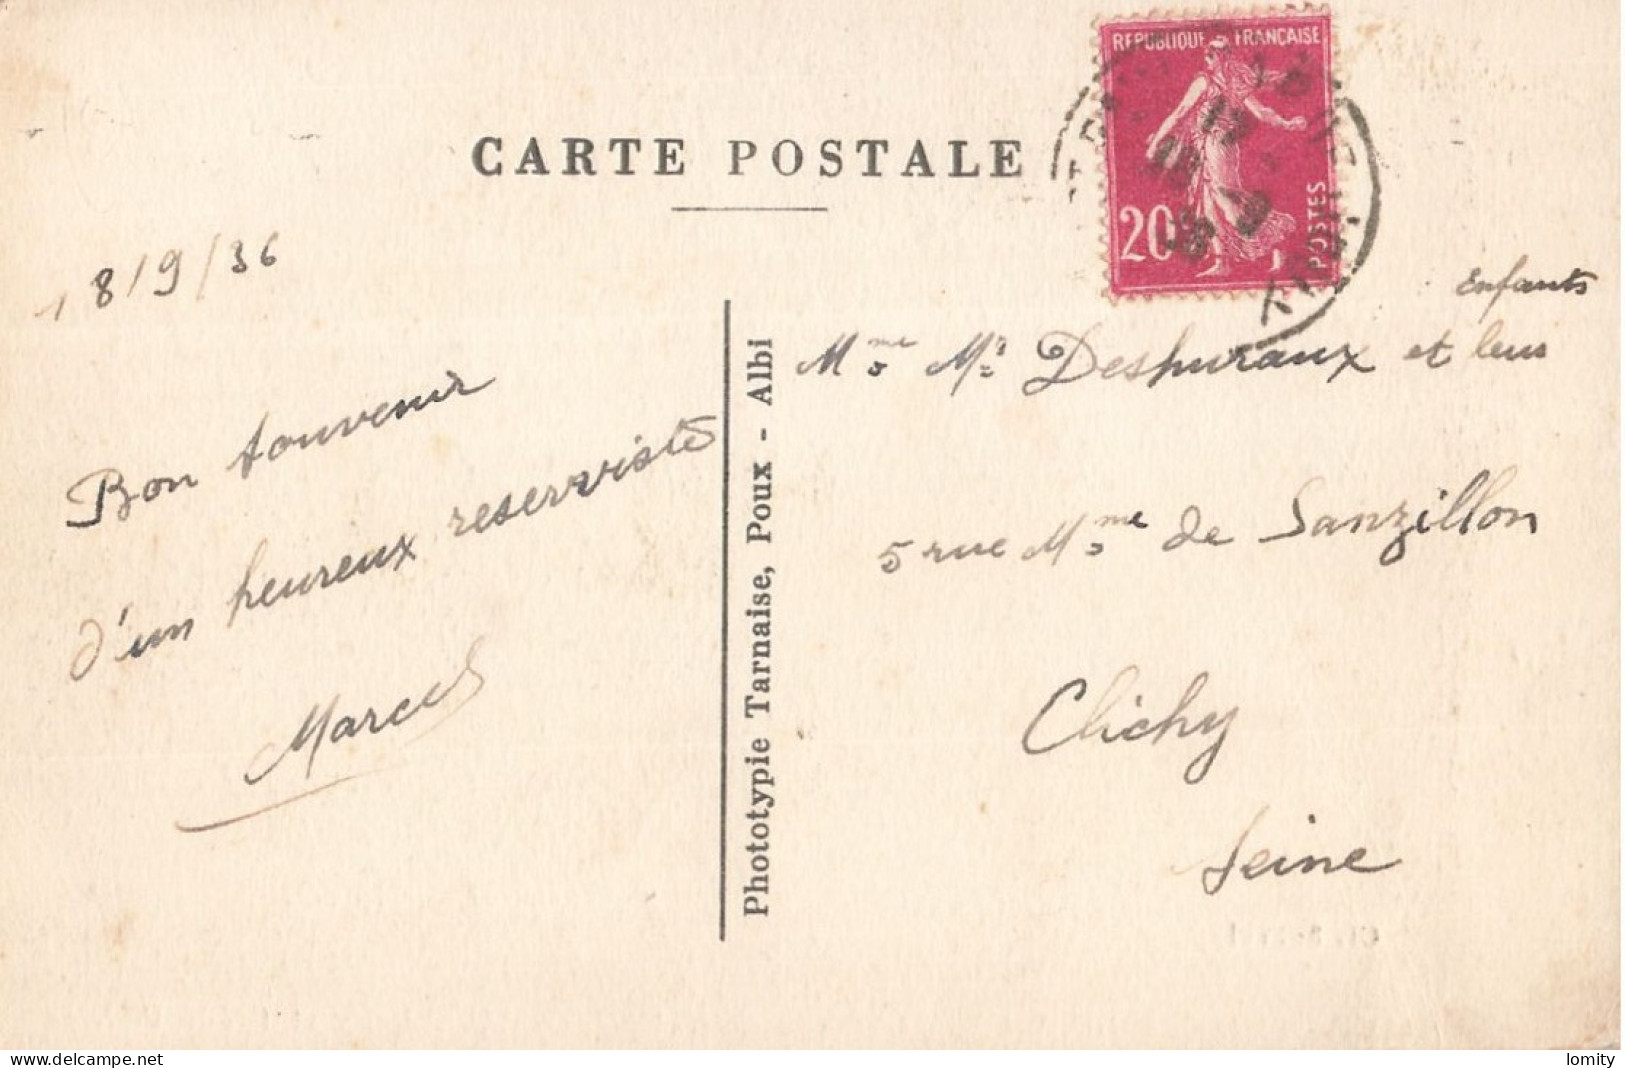 REPUBLIQUE FRANÇAISE
20
POSTES
CARTE POSTALE
18/9/36
Bon souvenir
d'un heureux reserviste
Marcel
Phototypie Tarnaise, Poux - Albi
Enfants
Mme Mr Deshuraux et leus
5 rue Mme de Sanzillon
Clichy
Seine
www.delcampe.net
lomity